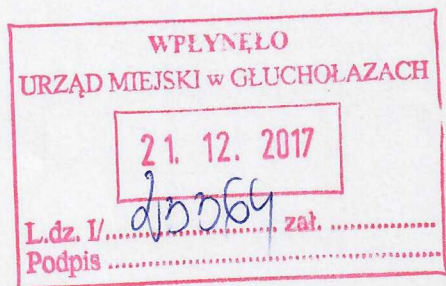 WPŁYNĘŁO
URZĄD MIEJSKI w GŁUCHOŁAZACH
21. 12. 2017
L.dz. I/............................ zał. ................
Podpis ................................................